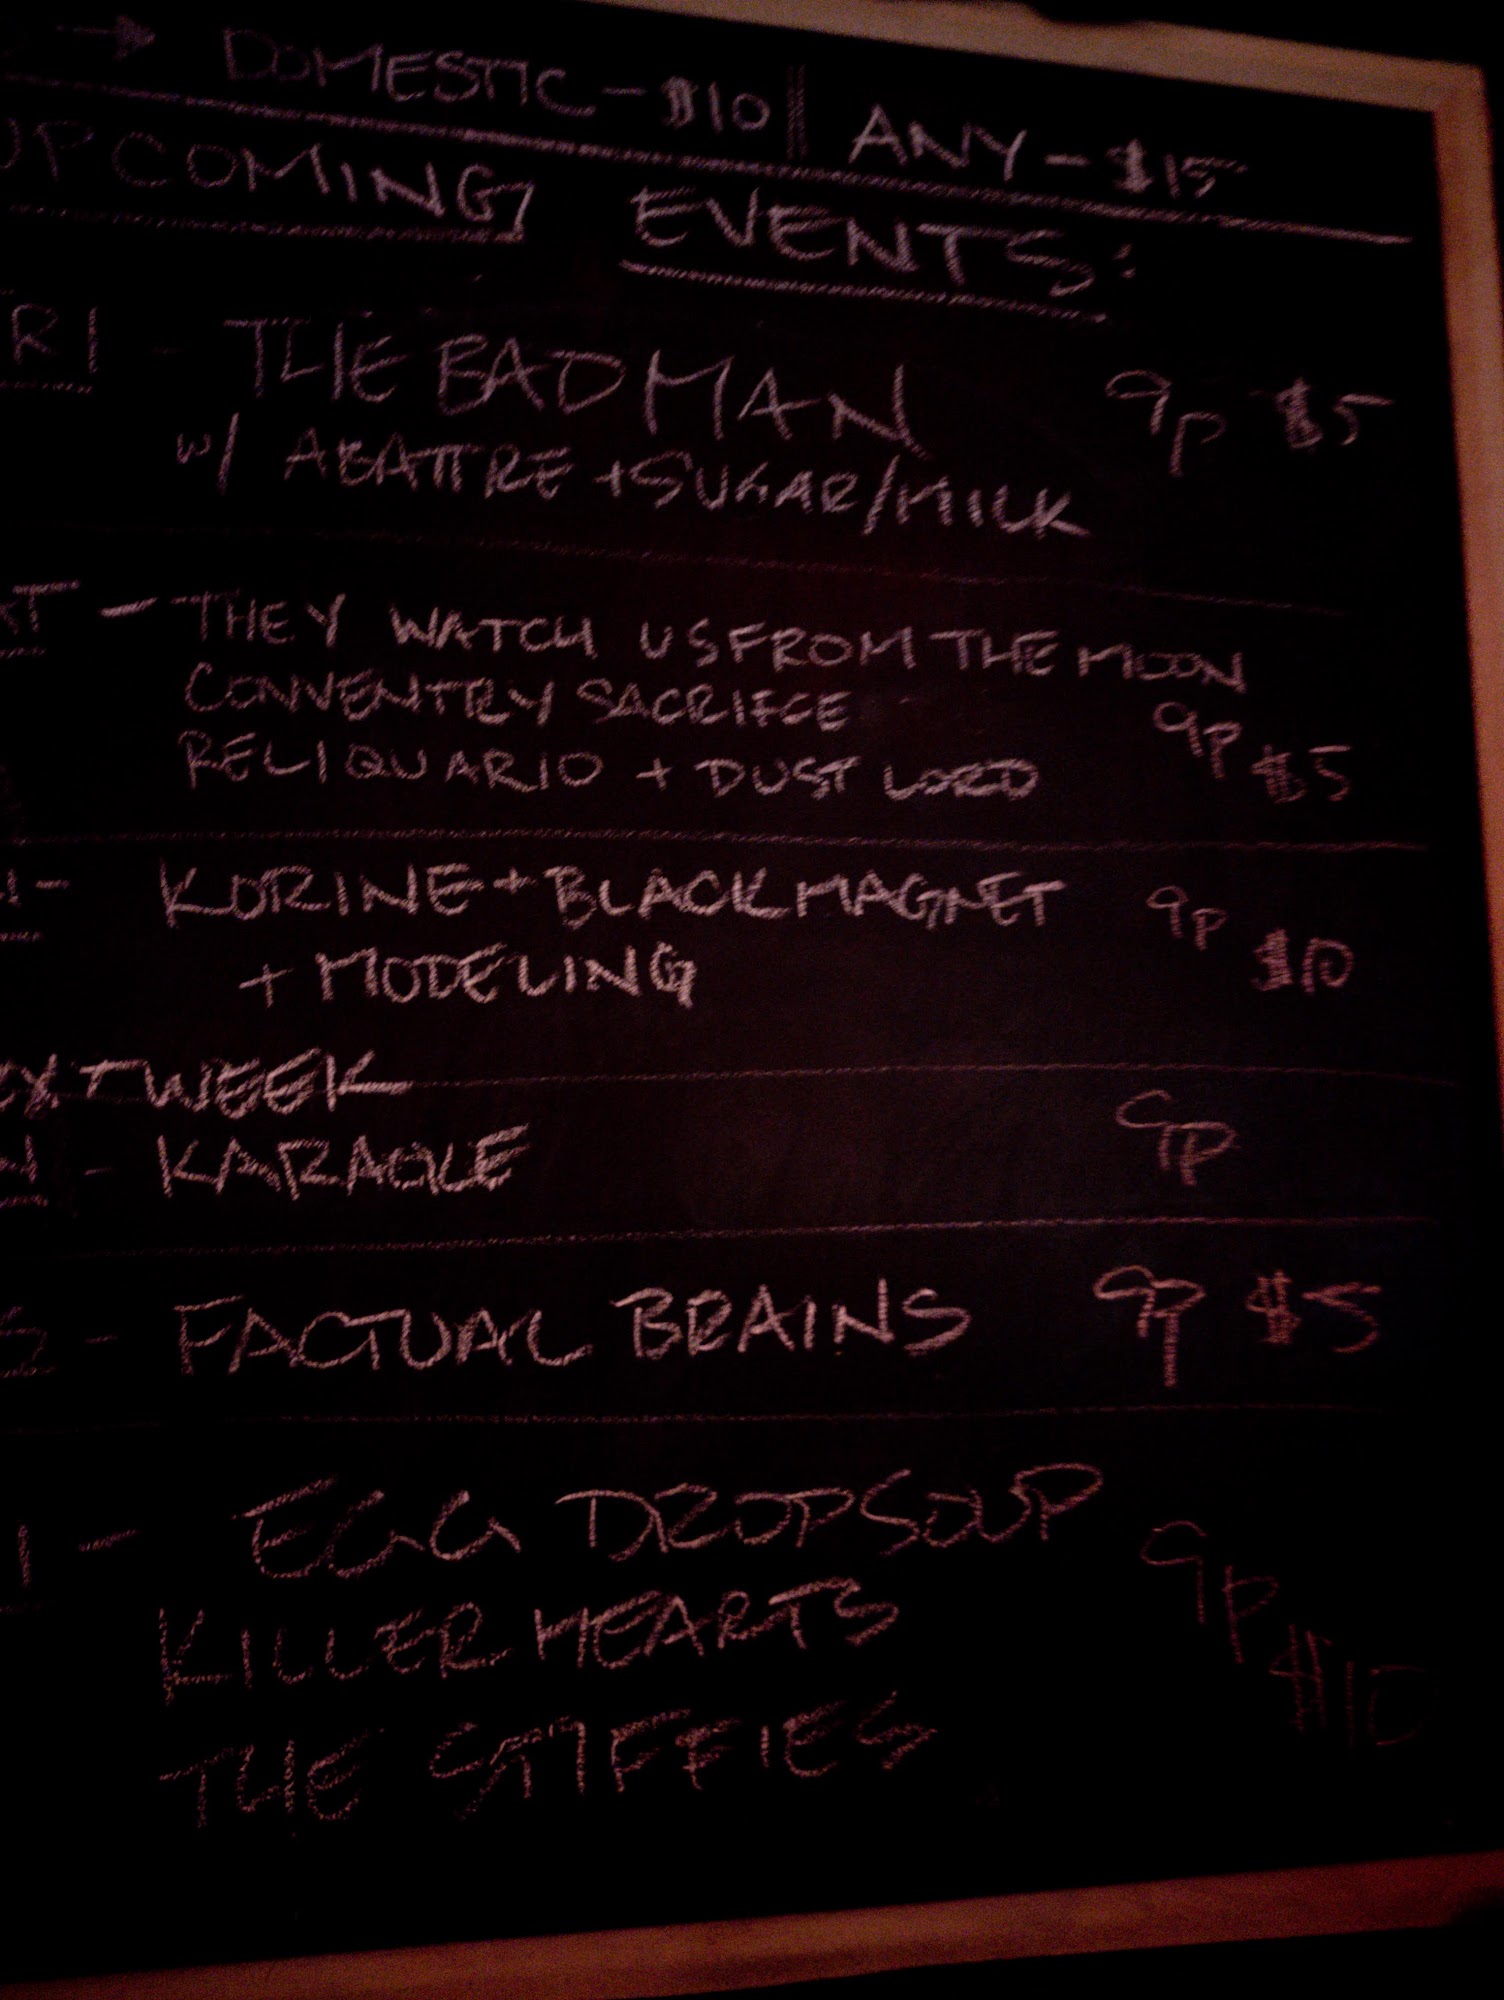 → DOMESTIC - $10 || ANY - $15
UPCOMING EVENTS:
RI - THE BAD MAN 9P $5
W/ ABATTRE + SUGAR/MILK
AT - THEY WATCH US FROM THE MOON
CONVENTRY SACRIFCE
RELIQUARIO + DUST LORD 9P $5
- KORINE + BLACK MAGNET 9P $10
+ MODELING
EXT WEEK
N - KARAOKE 9P
S - FACTUAL BRAINS 9P $5
I - EGG DROP SOUP 9P $10
KILLER HEARTS
THE STIFFIES